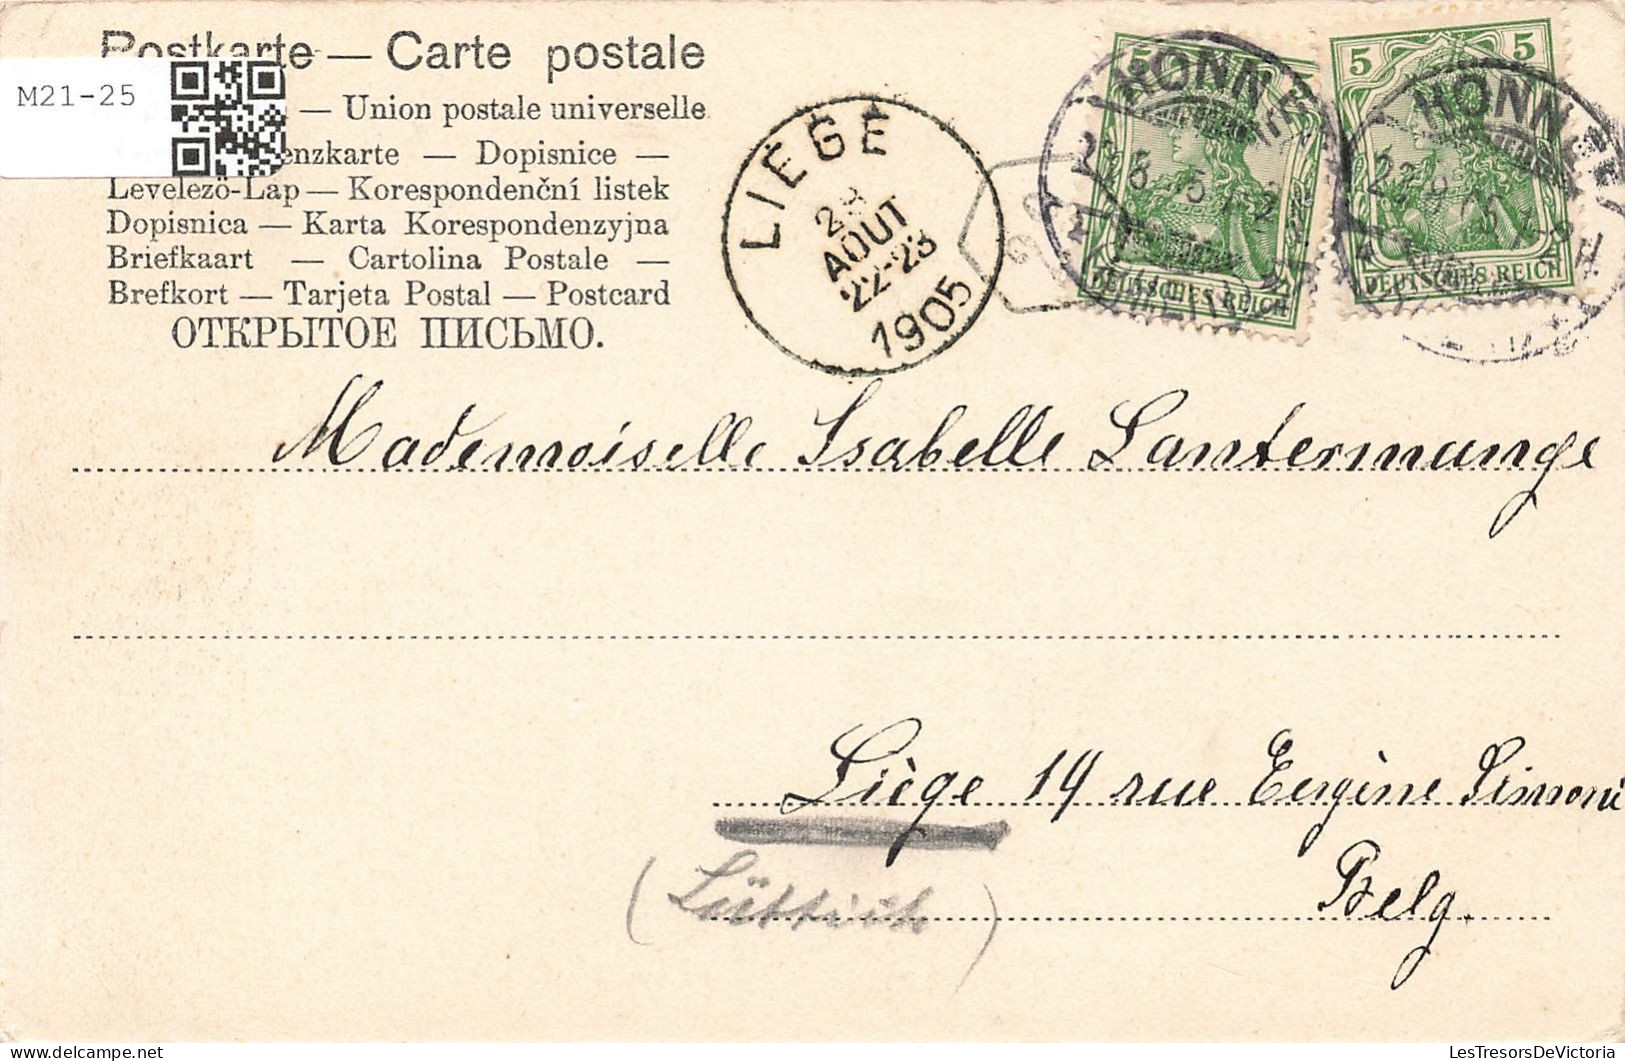 Postkarte — Carte postale
M21-25
— Union postale universelle
enzkarte — Dopisnice —
Levelező-Lap — Korespondenční listek
Dopisnica — Karta Korespondenzyjna
Briefkaart — Cartolina Postale —
Brefkort — Tarjeta Postal — Postcard
ОТКРЫТОЕ ПИСЬМО.
LIEGE
23
AOUT
22-23
1905
5 5
HONNEF
DEUTSCHES REICH
5 5
HONNEF
DEUTSCHES REICH
Mademoiselle Isabelle Lantermange
Liège 14 rue Eugène Simoni
(Lüttich)
Belg.
LesTresorsDeVictoria